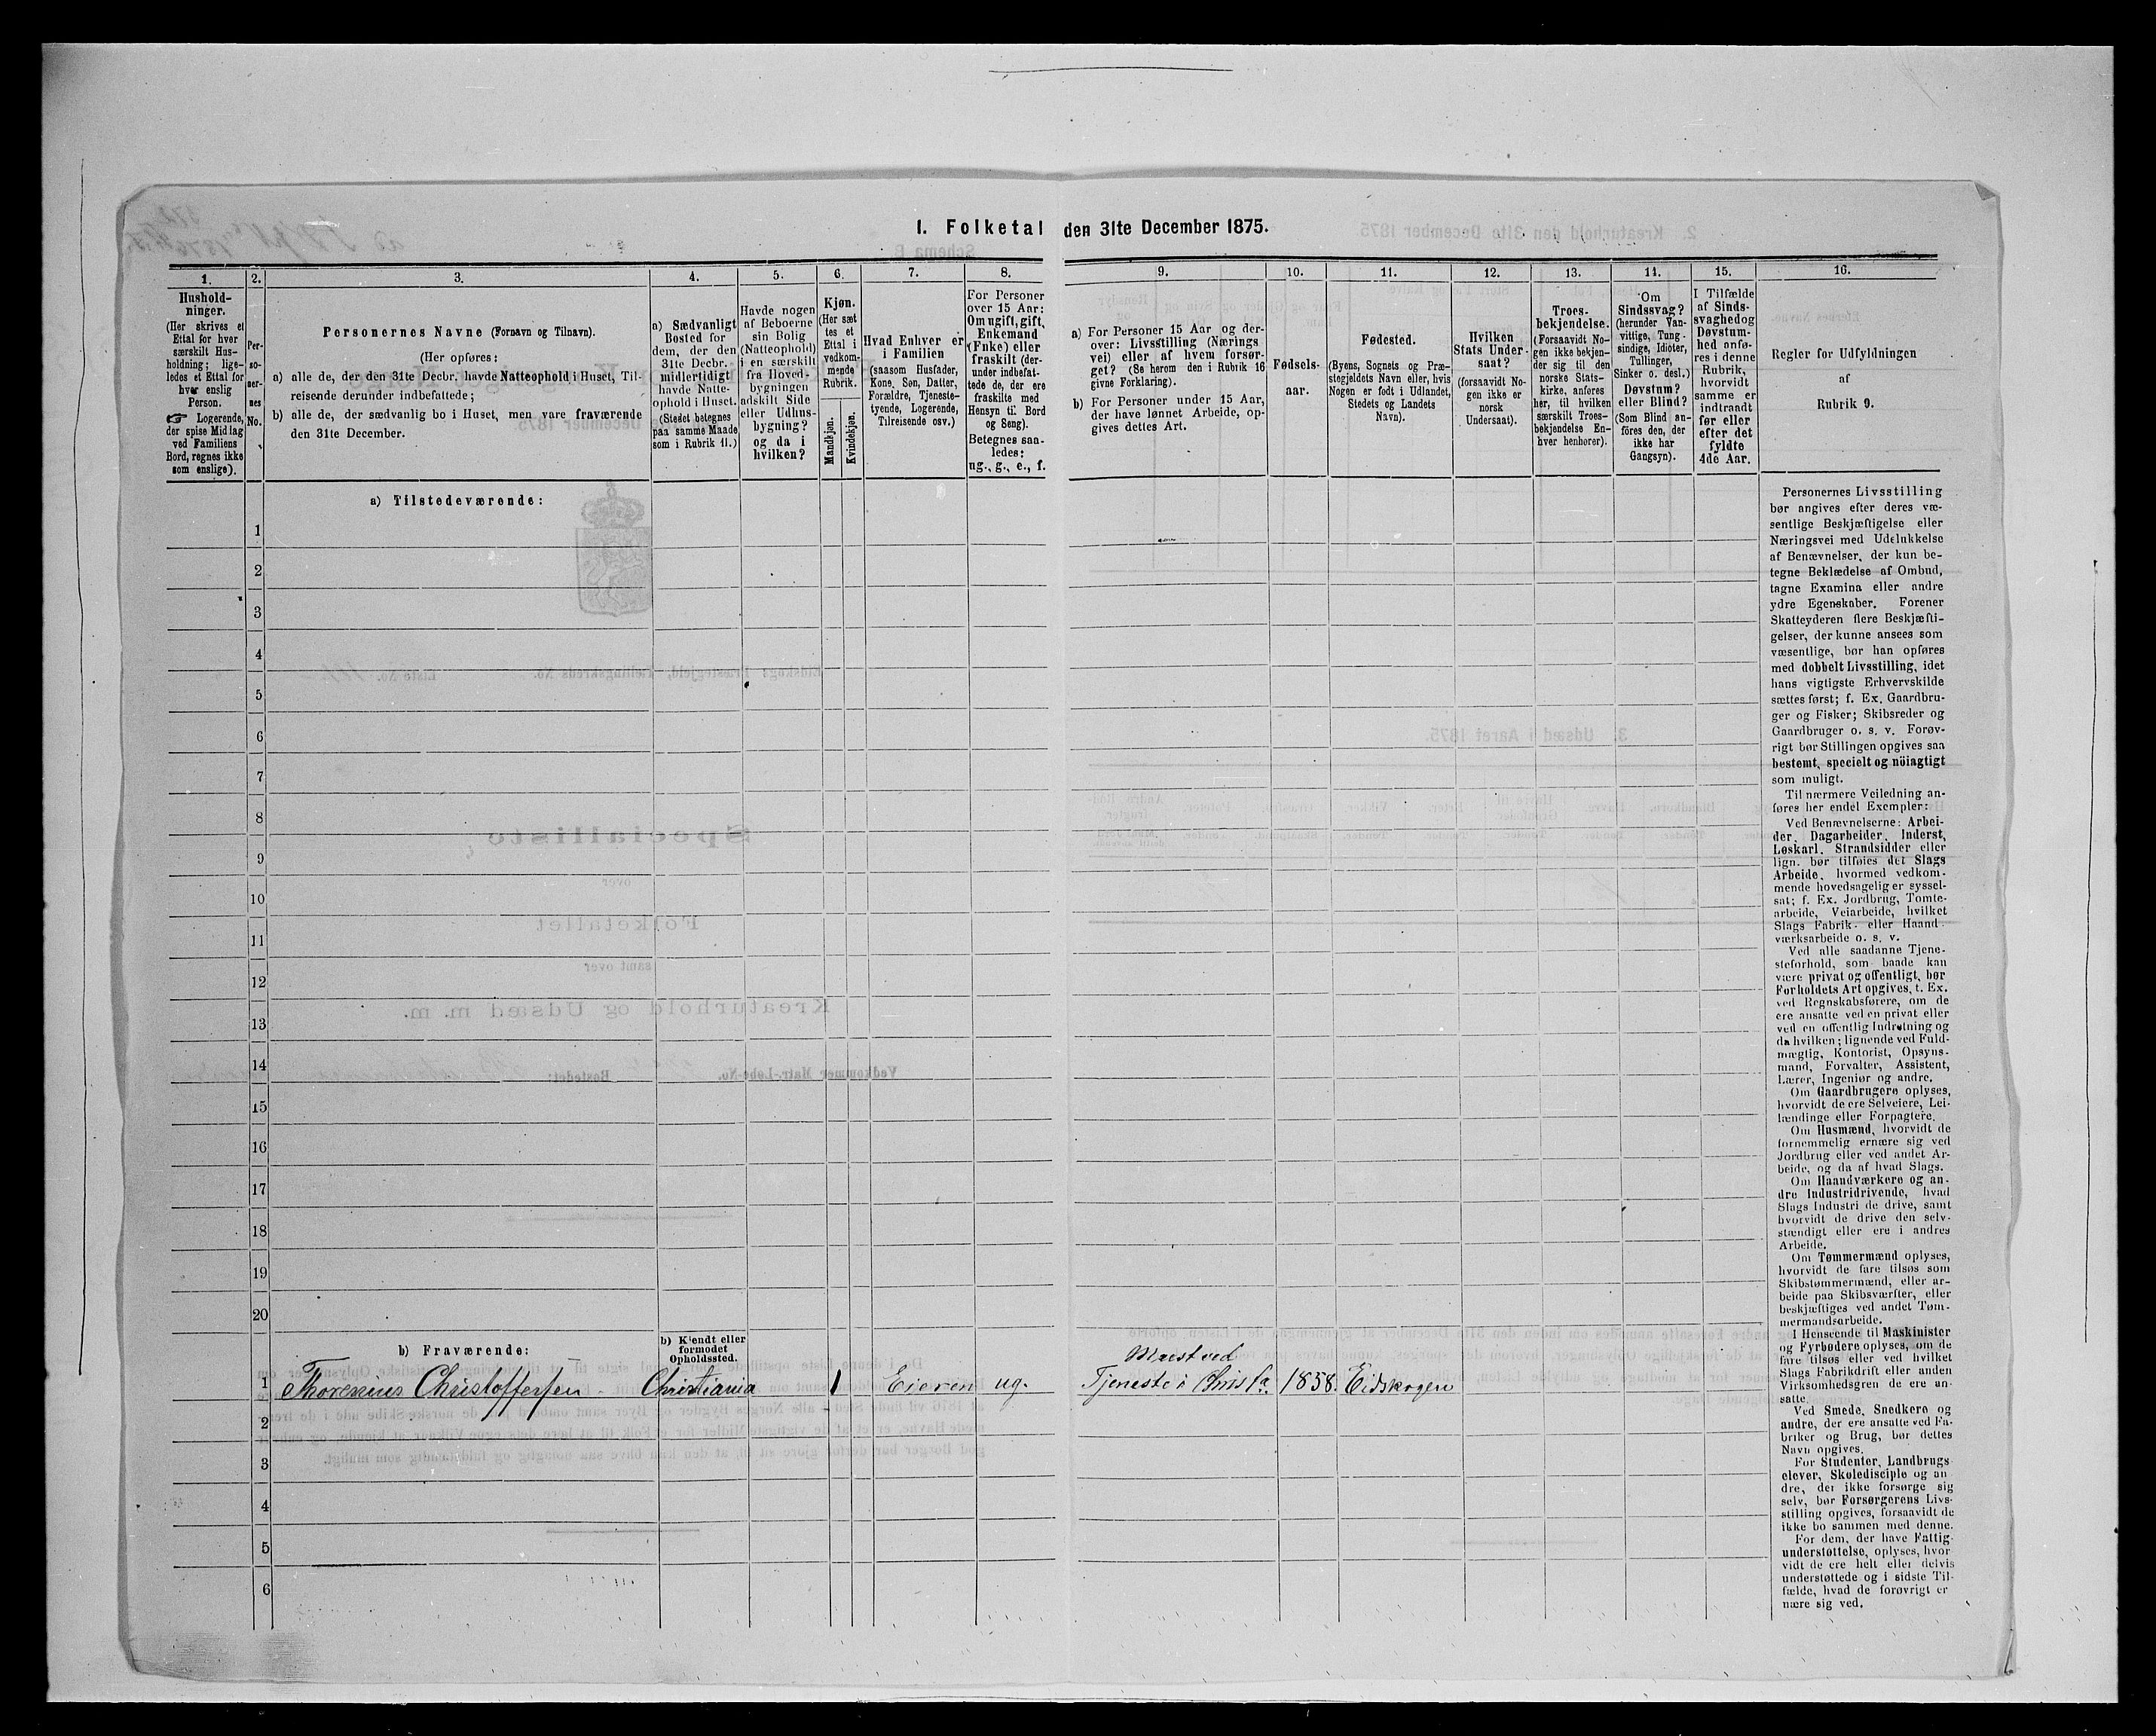 I. Folketal den 31te December 1875.
1.
2.
3.
4.
5.
6.
7.
8.
9.
10.
11.
12.
13.
14.
15.
16.
Hushold-
ninger.
(Her skrives et
Ettal for hver
særskilt Hus-
holdning; lige-
ledes et Ettal for
hver enslig
Person.
☞ Logerende,
der spise Midlag
ved Familiens
Bord, regnes ikke
som enslige).
Per-
so-
ner-
nes
No.
Personernes Navne (Fornavn og Tilnavn).
(Her opføres:
a) alle de, der den 31te Decbr. havde Natteophold i Huset, Til-
reisende derunder indbefattede;
b) alle de, der sædvanlig bo i Huset, men vare fraværende
den 31te December.
a) Sædvanligt
Bosted for
dem, der den
31te Decbr.
midlertidigt
havde Natte-
ophold i Huset.
(Stedet betegnes
paa samme Maade
som i Rubrik 11.)
Havde nogen
af Beboerne
sin Bolig
(Natteophold)
i en særskilt
fra Hoved-
bygningen
adskilt Side
eller Udhus-
bygning?
og da i
hvilken?
Kjøn.
(Her sæt
tes et
Ettal i
vedkom-
mende
Rubrik.
Mandkjøn.
Kvindekjøn.
Hvad Enhver er
i Familien
(saasom Husfader,
Kone, Søn, Datter,
Forældre, Tjeneste-
tyende, Logerende,
Tilreisende osv.)
For Personer
over 15 Aar:
Om ugift, gift,
Enkemand
(Enke) eller
fraskilt (der-
under indbefat-
tede de, der ere
fraskilte med
Hensyn til Bord
og Seng).
Betegnes saa-
ledes:
ug., g., e., f.
a) For Personer 15 Aar og der-
over: Livsstilling (Nærings
vei) eller af hvem forsør-
get? (Se herom den i Rubrik 16
givne Forklaring).
b) For Personer under 15 Aar,
der have lønnet Arbeide, op-
gives dettes Art.
Fødsels-
aar.
Fødested.
(Byens, Sognets og Præ-
stegjeldets Navn eller, hvis
Nogen er født i Udlandet,
Stedets og Landets
Navn).
Hvilken
Stats Under-
saat?
(forsaavidt No-
gen ikke er
norsk
Undersaat).
Troes-
bekjendelse.
(Forsaavidt No-
gen ikke bekjen-
der sig til den
norske Stats-
kirke, anføres
her, til hvilken
særskilt Troes-
bekjendelse En-
hver henhører).
Om
Sindssvag?
(herunder Van-
vittige, Tung-
sindige, Idioter,
Tullinger,
Sinker o. desl.)
Døvstum?
eller Blind?
(Som Blind an-
føres den, der
ikke har
Gangsyn).
I Tilfælde
af Sinds-
svaghed og
Døvstum-
hed anfø-
res i denne
Rubrik,
hvorvidt
samme er
indtraadt
før eller
efter det
fyldte
4de Aar.
Regler for Udfyldningen
af
Rubrik 9.
a) Tilstedeværende:
1
2
3
4
5
6
7
8
9
10
11
12
13
14
15
16
17
18
19
20
b) Fraværende:
b) Kjendt eller
formodet
Opholdssted.
Maest ved
1 Thorenius Christoffersen Christiania 1 Eieren ug. Tjeneste i Chris fa 1858. Eidskogen
2
3
4
5
6
Personernes Livsstilling
bør angives efter deres væ-
sentlige Beskjæftigelse eller
Næringsvei med Udelukkelse
af Benævnelser, der kun be-
tegne Beklædelse af Ombud,
tagne Examina eller andre
ydre Egenskaber. Forener
Skatteyderen flere Beskjæfti-
gelser, der kunne ansees som
væsentlige, bør han opføres
med dobbelt Livsstilling, idet
hans vigtigste Erhvervskilde
sættes først; f. Ex. Gaardbru-
ger og Fisker; Skibsreder og
Gaardbruger o. s. v. Forøv-
rigt bør Stillingen opgives saa
bestemt, specielt og nöiagtigt
som muligt.
Til nærmere Veiledning an-
føres her endel Exempler:
Ved Benævnelserne: Arbei-
der, Dagarbeider, Inderst,
Løskarl, Strandsidder eller
lign. bør tilføies det Slags
Arbeide, hvormed vedkom-
mende hovedsagelig er syssel-
sat; f. Ex. Jordbrug, Tomte-
arbeide, Veiarbeide, hvilket
Slags Fabrik- eller Haand-
værksarbeide o. s. v.
Ved alle saadanne Tjene-
steforhold, som baade kan
være privat og offentligt, bør
Forholdets Art opgives, t. Ex.
ved Regnskabsførere, om de
ere ansatte ved en privat eller
ved en offentlig Indretning og
da hvilken; lignende ved Fuld-
mægtig, Kontorist, Opsyns-
mand, Forvalter, Assistent,
Lærer, Ingeniør og andre.
Om Gaardbrugere oplyses,
hvorvidt de ere Selveiere, Lei-
lændinge eller Forpagtere.
Om Husmænd, hvorvidt de
fornemmelig ernære sig ved
Jordbrug eller ved andet Ar-
beide, og da af hvad Slags.
Om Haandværkere og an-
dre Industridrivende, hvad
Slags Industri de drive, samt
hvorvidt de drive den selv-
stændigt eller ere i andres
Arbeide.
Om Tømmermænd oplyses,
hvorvidt de fare tilsøs som
Skibstømmermænd, eller ar-
beide paa Skibsværfter, eller
beskjæftiges ved andet Tøm-
mermandsarbeide.
I Henseende til Maskinister
og Fyrbødere oplyses, om de
fare tilsøs eller ved hvilket
Slags Fabrikdrift eller anden
Virksomhedsgren de ere an-
satte.
Ved Smede, Snedkere og
andre, der ere ansatte ved Fa-
briker og Brug, bør dettes
Navn opgives.
For Studenter, Landbrugs-
elever, Skoledisciple og an
dre, der ikke forsørge sig
selv, bør Forsørgerens Livs-
stilling opgives, forsaavidt de
ikke bo sammen med denne.
For dem, der have Fattig-
understøttelse, oplyses, hvor
vidt de ere helt eller delvis
understøttede og i sidste Til-
fælde, hvad de forøvrigt er
nære sig ved.